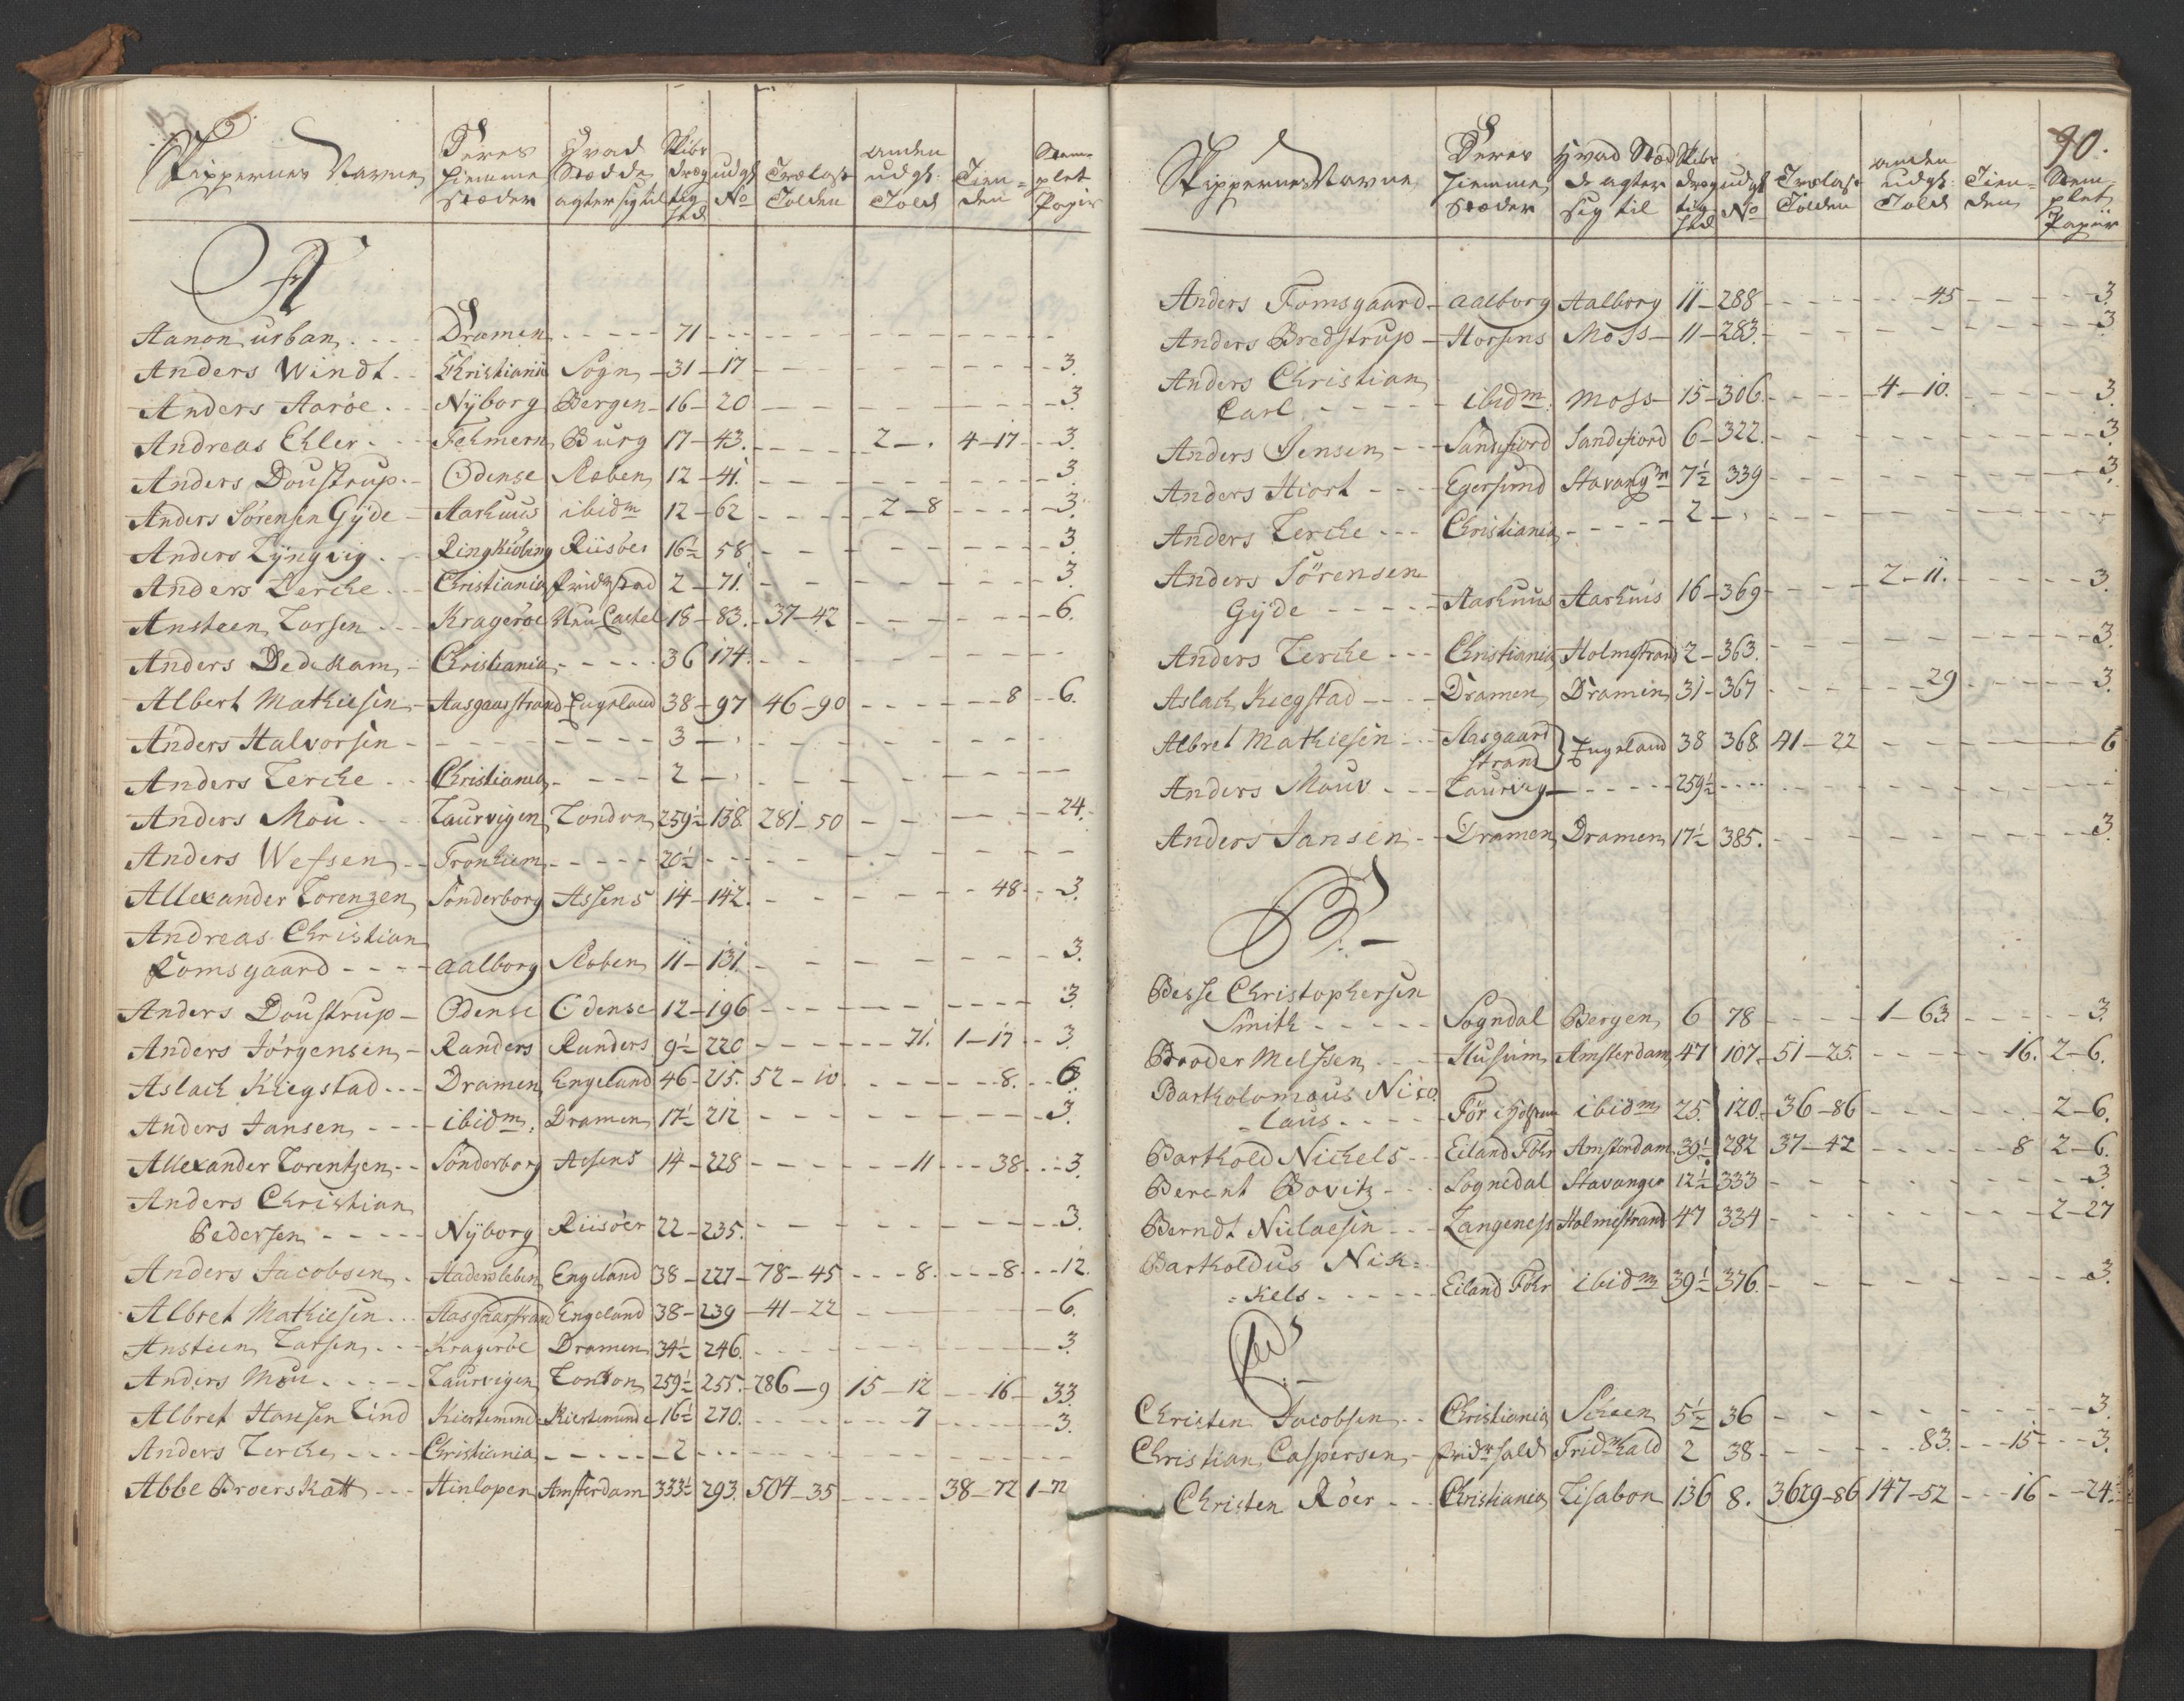 Skippernes Navne | Deres Hiemme Stæder | Hvad Stædde agter sig til | Skibs Drægtighed | udgl No | Trælast Tolden | Anden udgl Told | Tienden | Stemplet Papir
A
Aanon urban - Dramen - 71
Anders Windt - Christiania Sogn - 31 - 17 - 3.
Anders Aaröe - Nÿborg Bergen - 16 - 20 - 3.
Andreas Ehler - Fehmern Burg 17 - 43. - 2 - . 4-17 - 3.
Anders Doustrup - Odense Roben 12 - 41. - 3.
Anders Sörensen Gÿde - Aarhuus ibidm 12 - 62 - 2-8 - 3.
Anders Lÿngvig - Ringkiöbing Riisöer 16½ 58 - 3.
Anders Lerche - Christiania fridrstad 2 - 71. - 3.
Ansteen Larsen - Krageröe Neu Castel 18 - 83. - 37-42 - 6.
Anders Dedekam - Christiania - 36 174.
Albert Mathiesen - Aasgaasstrand Engeland 38 - 97 46-90 - 8 - 6.
Anders Halvorsen - 3
Anders Lerche - Christiania - 2
Anders Mou - Laurvigen London 259½ 138. 281-50 - 24.
Anders Wessen - Tronhiem - 20½
Allexander Lorenzen Sönderborg Assens 14 - 142. - 48. - 3.
Andreas Christian
Tomsgaard - aalborg Roben 11 - 131. - 3.
Anders Doustrup - Odense Odense 12 - 196 - 3.
Anders Jörgensen - Randers Randers 9½ 220 - 71. 1-17 - 3.
Aslach Kiegstad - Dramen Engeland 46 - 215. 52-10. - 8. - 6
Anders Jansen - ibidm. Dramen 17½ 212 - 3.
Allexander Lorentzen - Sönderborg Assens 14 - 228 - 11 - 38. - 3.
Anders Christian
Pedersen - Nÿborg Riisöer 22 - 235. - 3.
Anders Jacobsen - Hadersleben Engeland 38 - 227 - 78-45 - 8. - 8. - 12.
Albret Mathiesen - Aasgaarstrand Engeland 38 - 239 - 41-22 - 6.
Ansteen Larsen - Krageröe Dramen 34½ 246. - 3.
Anders Mou - Laurvigen London 259½ 255. - 286-9 15-12 - 16 - 33.
Albret Hansen Lind Kierteminde Kierteminde 16½ 270. - 7 - 3.
Anders Lerche - Christiania - 2
Abbe Broers Katt - Hinlopen Amsterdam 333½ 293. 504-35 - 38-72 1-72
90.
Skippernes Navne | Deres Hiemme Stæder | Hvad Stæd de agter sig til | Skibs Drægtighed | udgl No | Trælast Tolden | Anden udgl. Told | Tienden | Stemplet Papiir
Anders Tomsgaard - aalborg Aalborg 11 - 288 - 45 - 3.
Anders Bredstrup - Horsens Moss - 11 - 283. - 3
Anders Christian
Carl - ibidm. Moss - 15 - 306. - 4-10. - 3.
Anders Jensen - Sandefiord Sandefiord 6 - 322. - 3.
Anders Hiort - Egersund Stavangr 7½ 339 - 3.
Anders Lerche - Christiania - 2
Anders Sörensen
Gÿde - Aarhuus Aarhuus 16 - 369 - 2-11. - 3.
Anders Lerche - Christiania Holmstrand 2 - 363. - 3.
Aslach Kiegstad - Dramen Dramen 31 - 367 - 29 - 3.
Albret Mathiesen - Aasgaard
strand } Engeland 38 368. 41-22 - 6
Anders Mouv - Laurvig - 259½
Anders Jansen - Dramen Dramen 17½ 385. - 3.
B.
Besse Christophersen
Smith - Sogndal Bergen 6 78 - 1-63 - 3.
Broder Melssen - Husum Amsterdam 47 107. - 51-25. - 16. 2-6.
Bartholomæus Nico
laus - För i Holsteen ibidm 25. 120. - 36-86 - 2-6.
Barthold Nichels - Eiland Föhr Amsterdam 39½ 282 37-42 - 8 2-6.
Berent Bovitz - Sognedal Stavanger 12½ 333 - 3.
Berndt Niclaesen - Langeness Holmestrand 47 334 - 2-27
Bartholdus Nick=
=kels - Eiland Föhr ibidm 39½ 376. - 3.
C
Christen Jacobsen - Christiania Scheen 5½ 36 - 3.
Christian Caspersen - fridrhald Fridrhald 2 38 - 83. - 15 - 3.
Christen Röer - Christiania Lisabon 136 8. 3629-86 147-52 - 16 - 24.